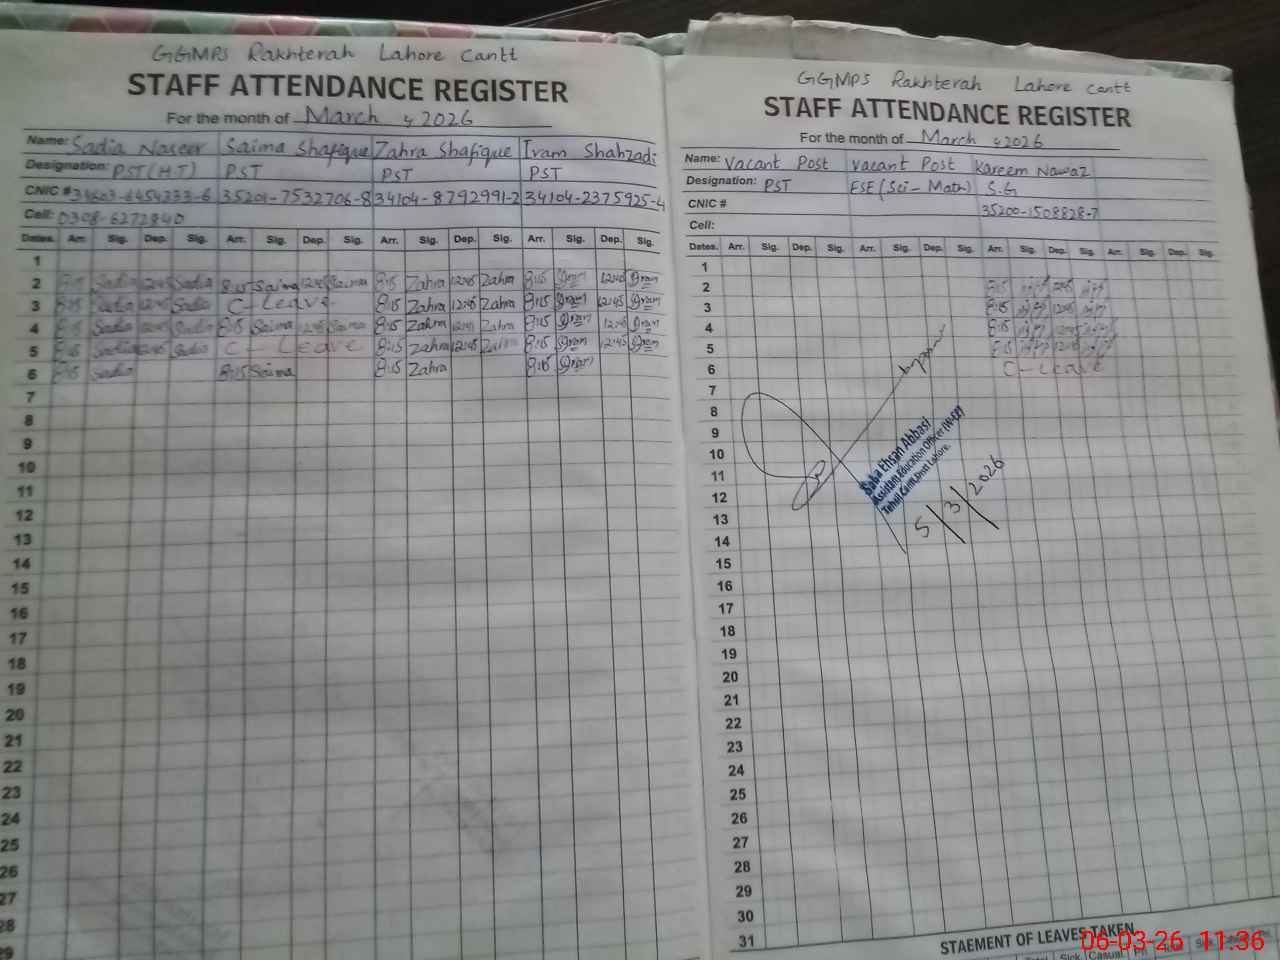 GGMPS Rakhterah Lahore Cantt
STAFF ATTENDANCE REGISTER
For the month of March , 2026
Name: Sadia Naseer Saima Shafique Zahra Shafique Iram Shahzadi
Designation: PST(HT) PST PST PST
CNIC # 34603-6454233-6 35201-7532706-8 34104-8792991-2 34104-2375925-4
Cell: 0308-6272840
Dates. Arr. Sig. Dep. Sig. Arr. Sig. Dep. Sig. Arr. Sig. Dep. Sig. Arr. Sig. Dep. Sig.
1
2 8:15 Sadia 12:45 Sadia 8:15 Saima 12:45 Saima 8:15 Zahra 12:45 Zahra 8:15 Iram 12:45 Iram
3 8:15 Sadia 12:45 Sadia C-Leave 8:15 Zahra 12:45 Zahra 8:15 Iram 12:45 Iram
4 8:15 Sadia 12:45 Sadia 8:15 Saima 12:45 Saima 8:15 Zahra Zahra 8:15 Iram 12:45 Iram
5 8:15 Sadia 12:45 Sadia C-Leave 8:15 Zahra 12:45 Zahra 8:15 Iram 12:45 Iram
6 8:15 Sadia 8:15 Saima 8:15 Zahra 8:15 Iram
7
8
9
10
11
12
13
14
15
16
17
18
19
20
21
22
23
24
25
26
27
28
29
GGMPS Rakhterah Lahore Cantt
STAFF ATTENDANCE REGISTER
For the month of March , 2026
Name: Vacant Post Vacant Post Kareem Nawaz
Designation: PST ESE(Sci-Math) S.G
CNIC # 35200-1508828-7
Cell:
Dates. Arr. Sig. Dep. Sig. Arr. Sig. Dep. Sig. Arr. Sig. Dep. Sig. Arr. Sig. Dep. Sig.
1
2 8:15 12:45
3 8:15 12:45
4 8:15 12:45
5 8:15 12:45
6 C-Leave
7
8
9
10
11
12
13
14
15
16
17
18
19
20
21
22
23
24
25
26
27
28
29
30
31
Saba Ehsan Abbasi
Assistant Education Officer (W-EE)
Tehsil Cantt, Distt Lahore.
5/3/2026
STAEMENT OF LEAVES TAKEN
Sick Casual
06-03-26 11:36